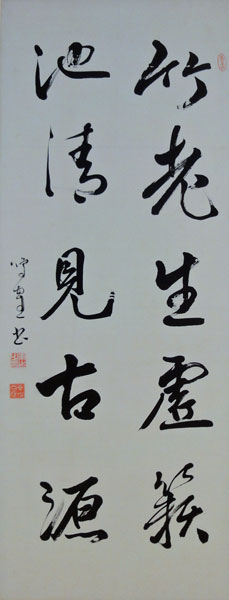 竹老生虚籟
池清見古源